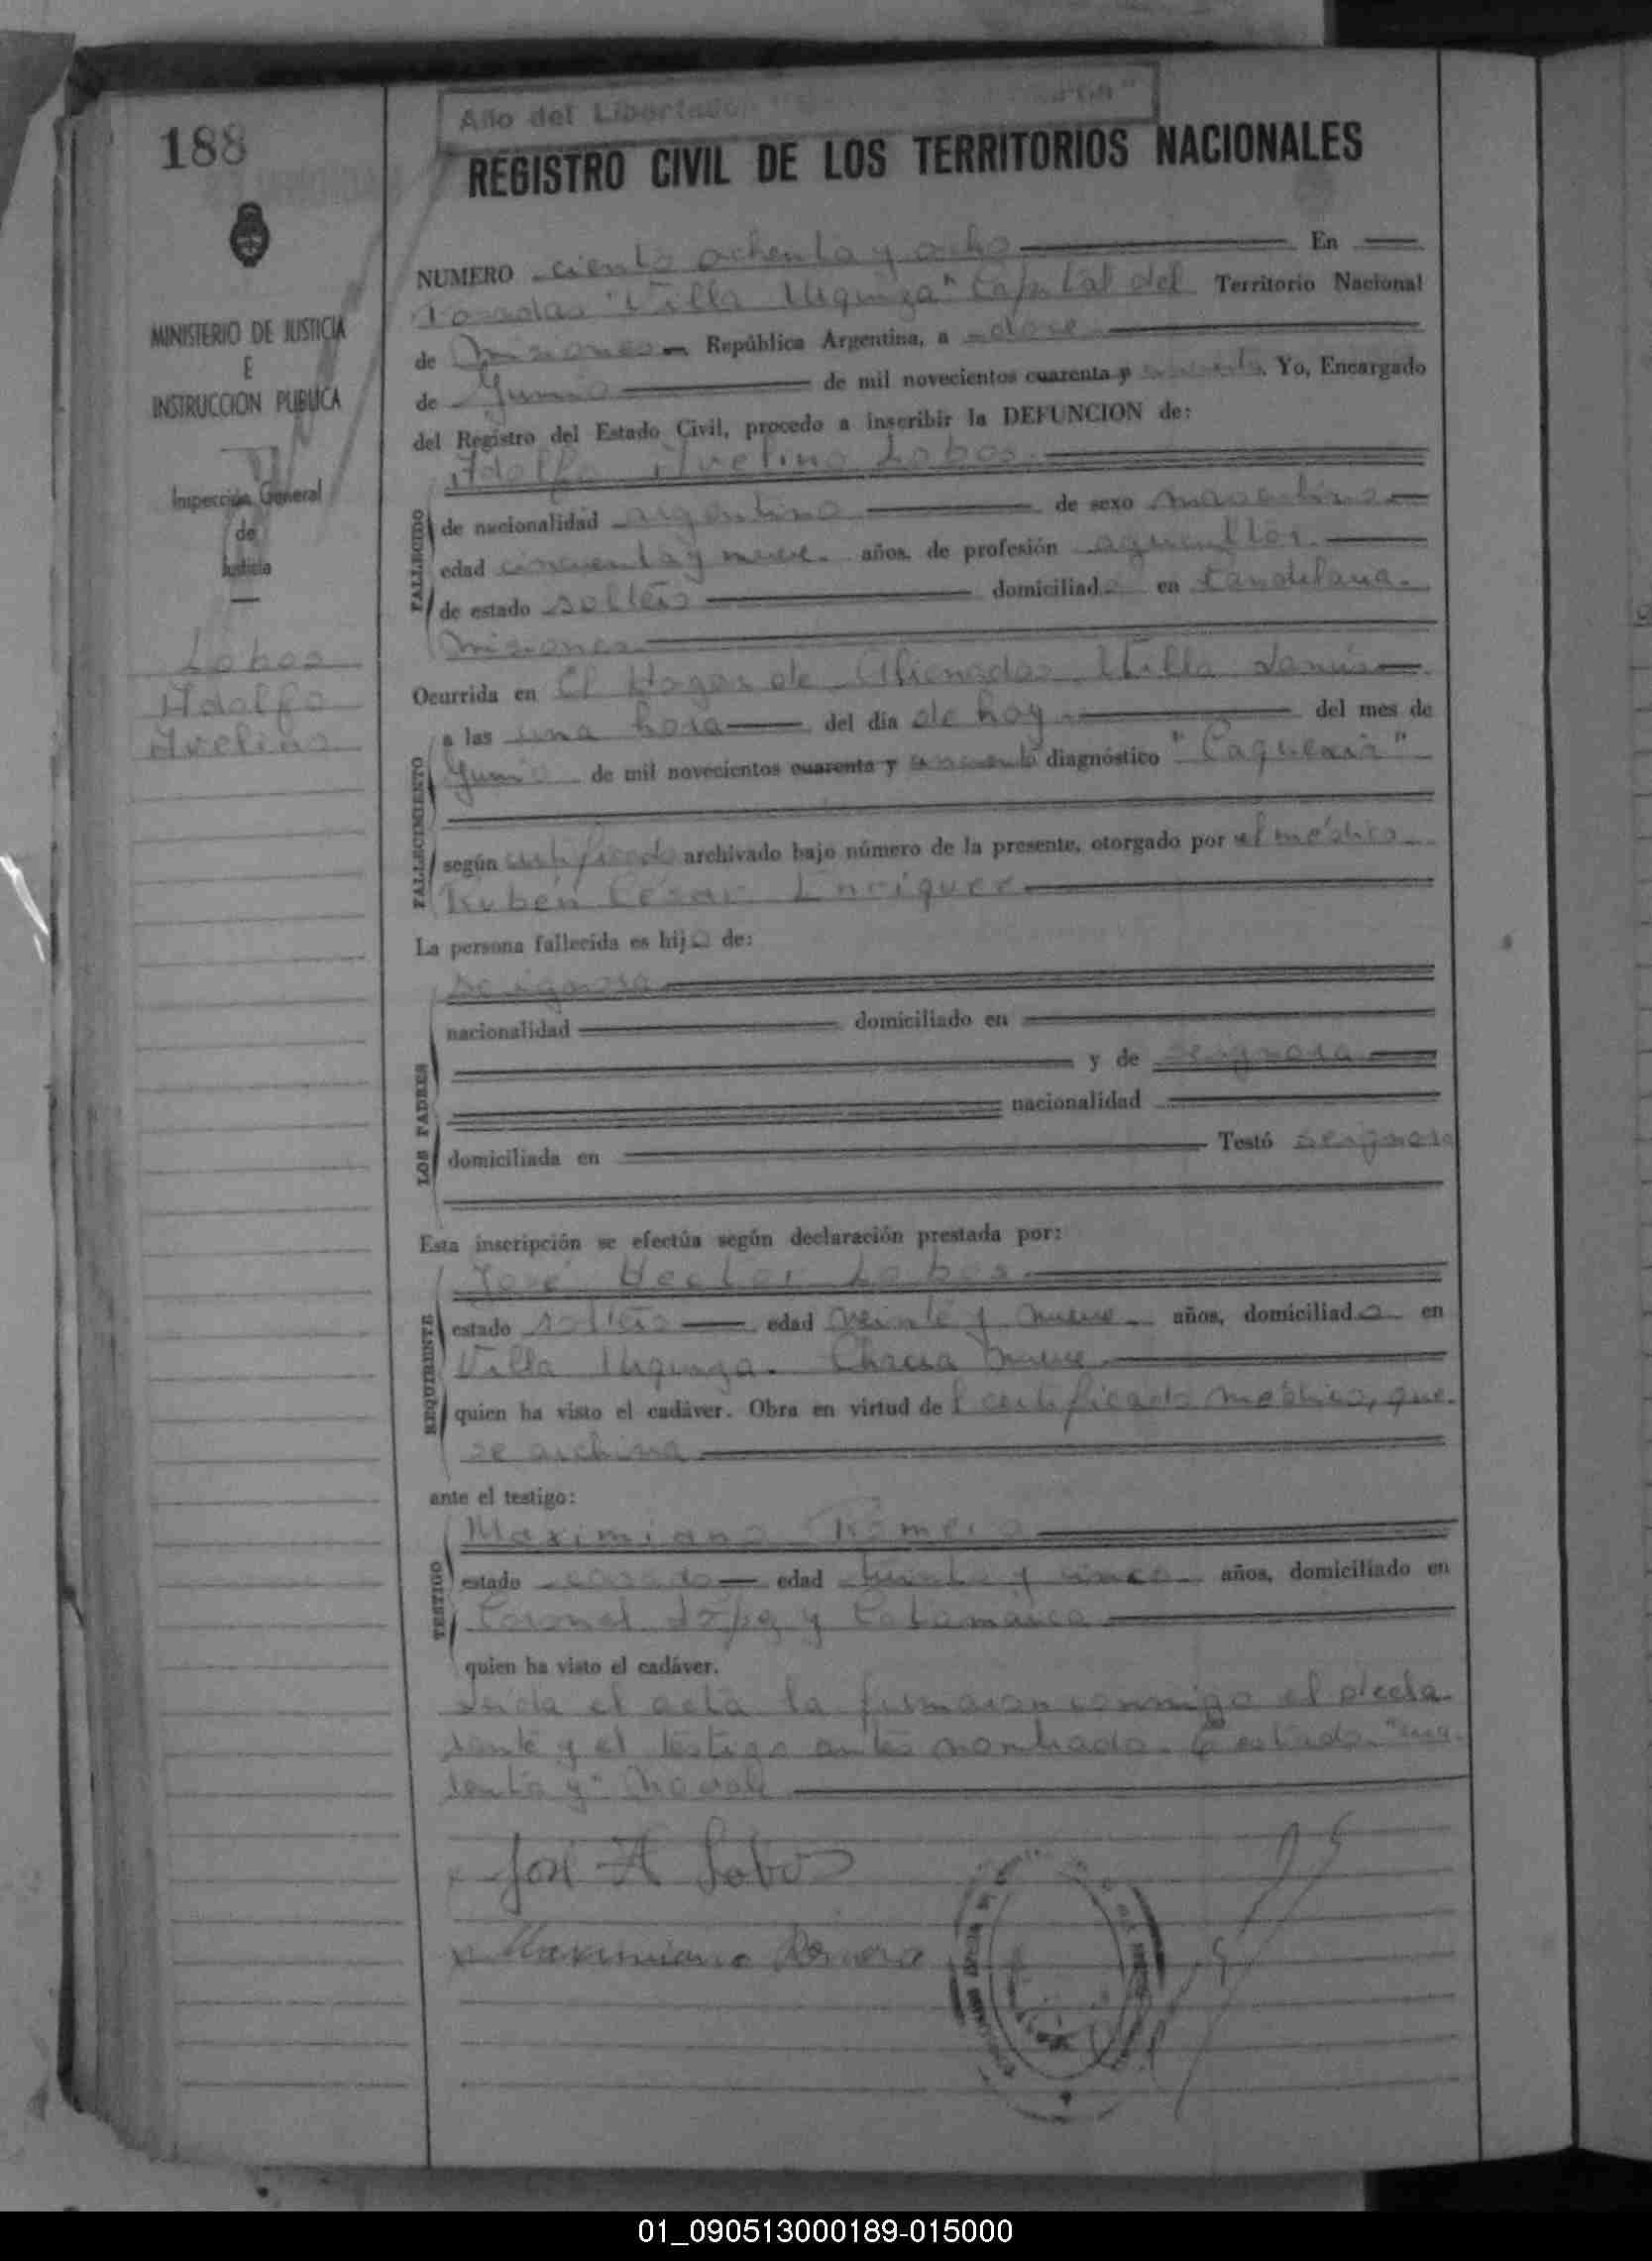 188
Año del Libertador
REGISTRO CIVIL DE LOS TERRITORIOS NACIONALES
MINISTERIO DE JUSTICIA
E
INSTRUCCION PUBLICA
Inspección General
de
Justicia
Lobos
Adolfo
Avelino
NUMERO ciento ochenta y ocho En
Posadas "Villa Urquiza" Capital del Territorio Nacional
de Misiones República Argentina, a doce
de Junio de mil novecientos cuarenta y cincuenta. Yo, Encargado
del Registro del Estado Civil, procedo a inscribir la DEFUNCION de:
Adolfo Avelino Lobos
FALLECIDO
de nacionalidad argentino de sexo masculino
edad cincuenta y nueve años, de profesión agricultor
de estado soltero domiciliado en Candelaria.
Misiones
Ocurrida en El Hogar de Alienados Villa Lanús
FALLECIMIENTO
a las una hora del día de hoy del mes de
Junio de mil novecientos cuarenta y cincuenta diagnóstico "Caquexia"
según certificado archivado bajo número de la presente, otorgado por el médico
Rubén César Enriquez
La persona fallecida es hijo de:
LOS PADRES
se ignora
nacionalidad domiciliado en
y de se ignora
nacionalidad
domiciliada en Testó se ignora
Esta inscripción se efectúa según declaración prestada por:
REQUIRENTE
José Hector Lobos
estado soltero edad veinte y nueve años, domiciliado en
Villa Urquiza. Chacra nueve
quien ha visto el cadáver. Obra en virtud del certificado médico, que
se archiva
ante el testigo:
TESTIGO
Maximiano Romero
estado casado edad treinta y cinco años, domiciliado en
Coronel López y Catamarca
quien ha visto el cadáver.
Leída el acta la firmaron conmigo el decla
rante y el testigo antes nombrado. "cua
renta y" No vale
José H Lobos
Maximiano Romero
01_090513000189-015000